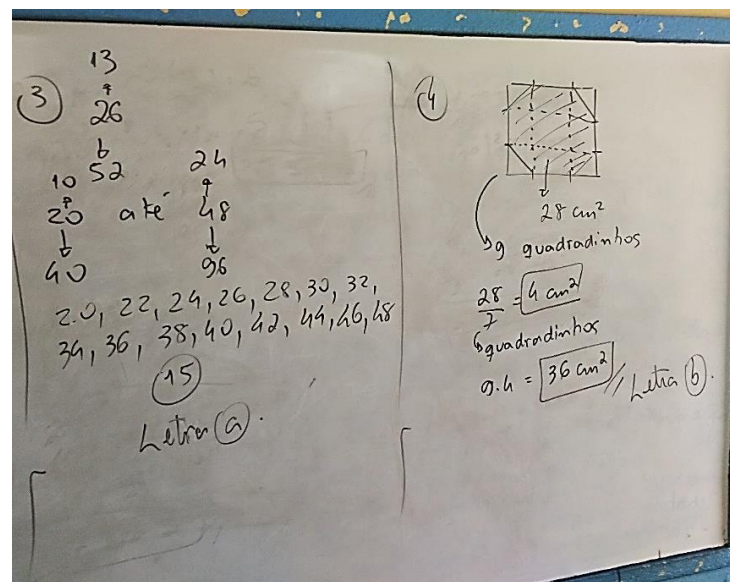 3
13
26
52
10
20 até 48
24
40
96
20, 22, 24, 26, 28, 30, 32,
34, 36, 38, 40, 42, 44, 46, 48
15
Letra a.
4
28 cm²
9 quadradinhos
28/7 = 4 cm²
quadradinhos
9.4 = 36 cm² // Letra b.